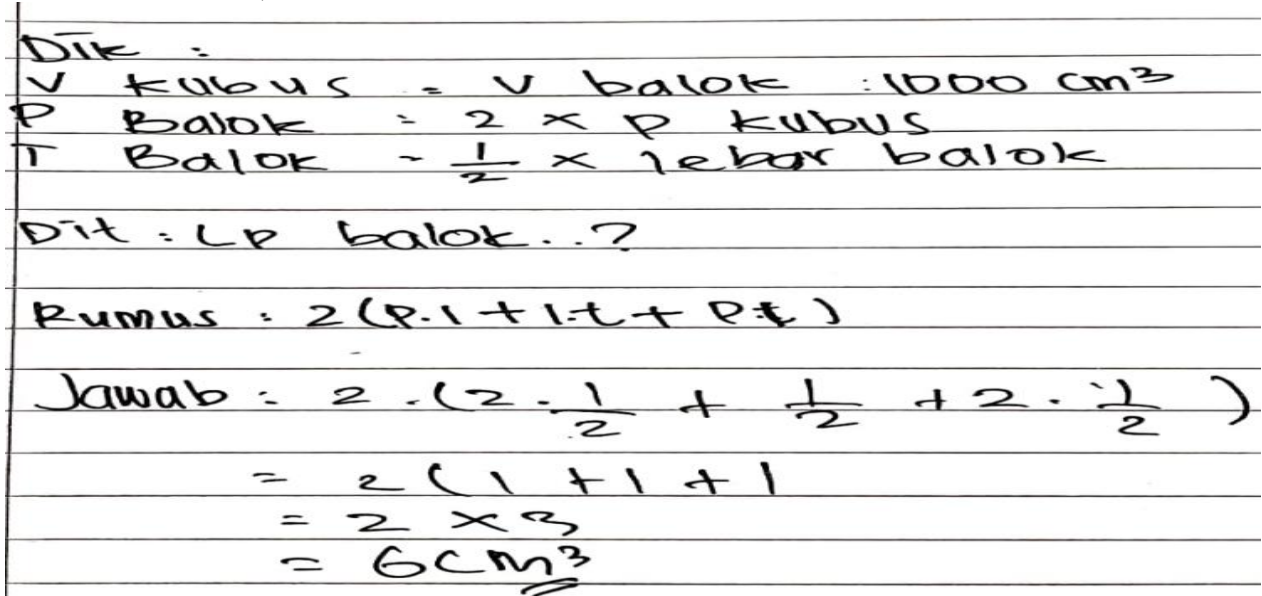 Dik :
V kubus = V balok : 1000 cm³
P Balok = 2 × P kubus
T Balok = 1/2 × lebar balok
Dit : LP balok..?
Rumus : 2 (P.l + l.t + P.t)
Jawab : 2 . (2 . 1/2 + 1/2 + 2 . 1/2 )
= 2 ( 1 + 1 + 1
= 2 × 3
= 6 cm³